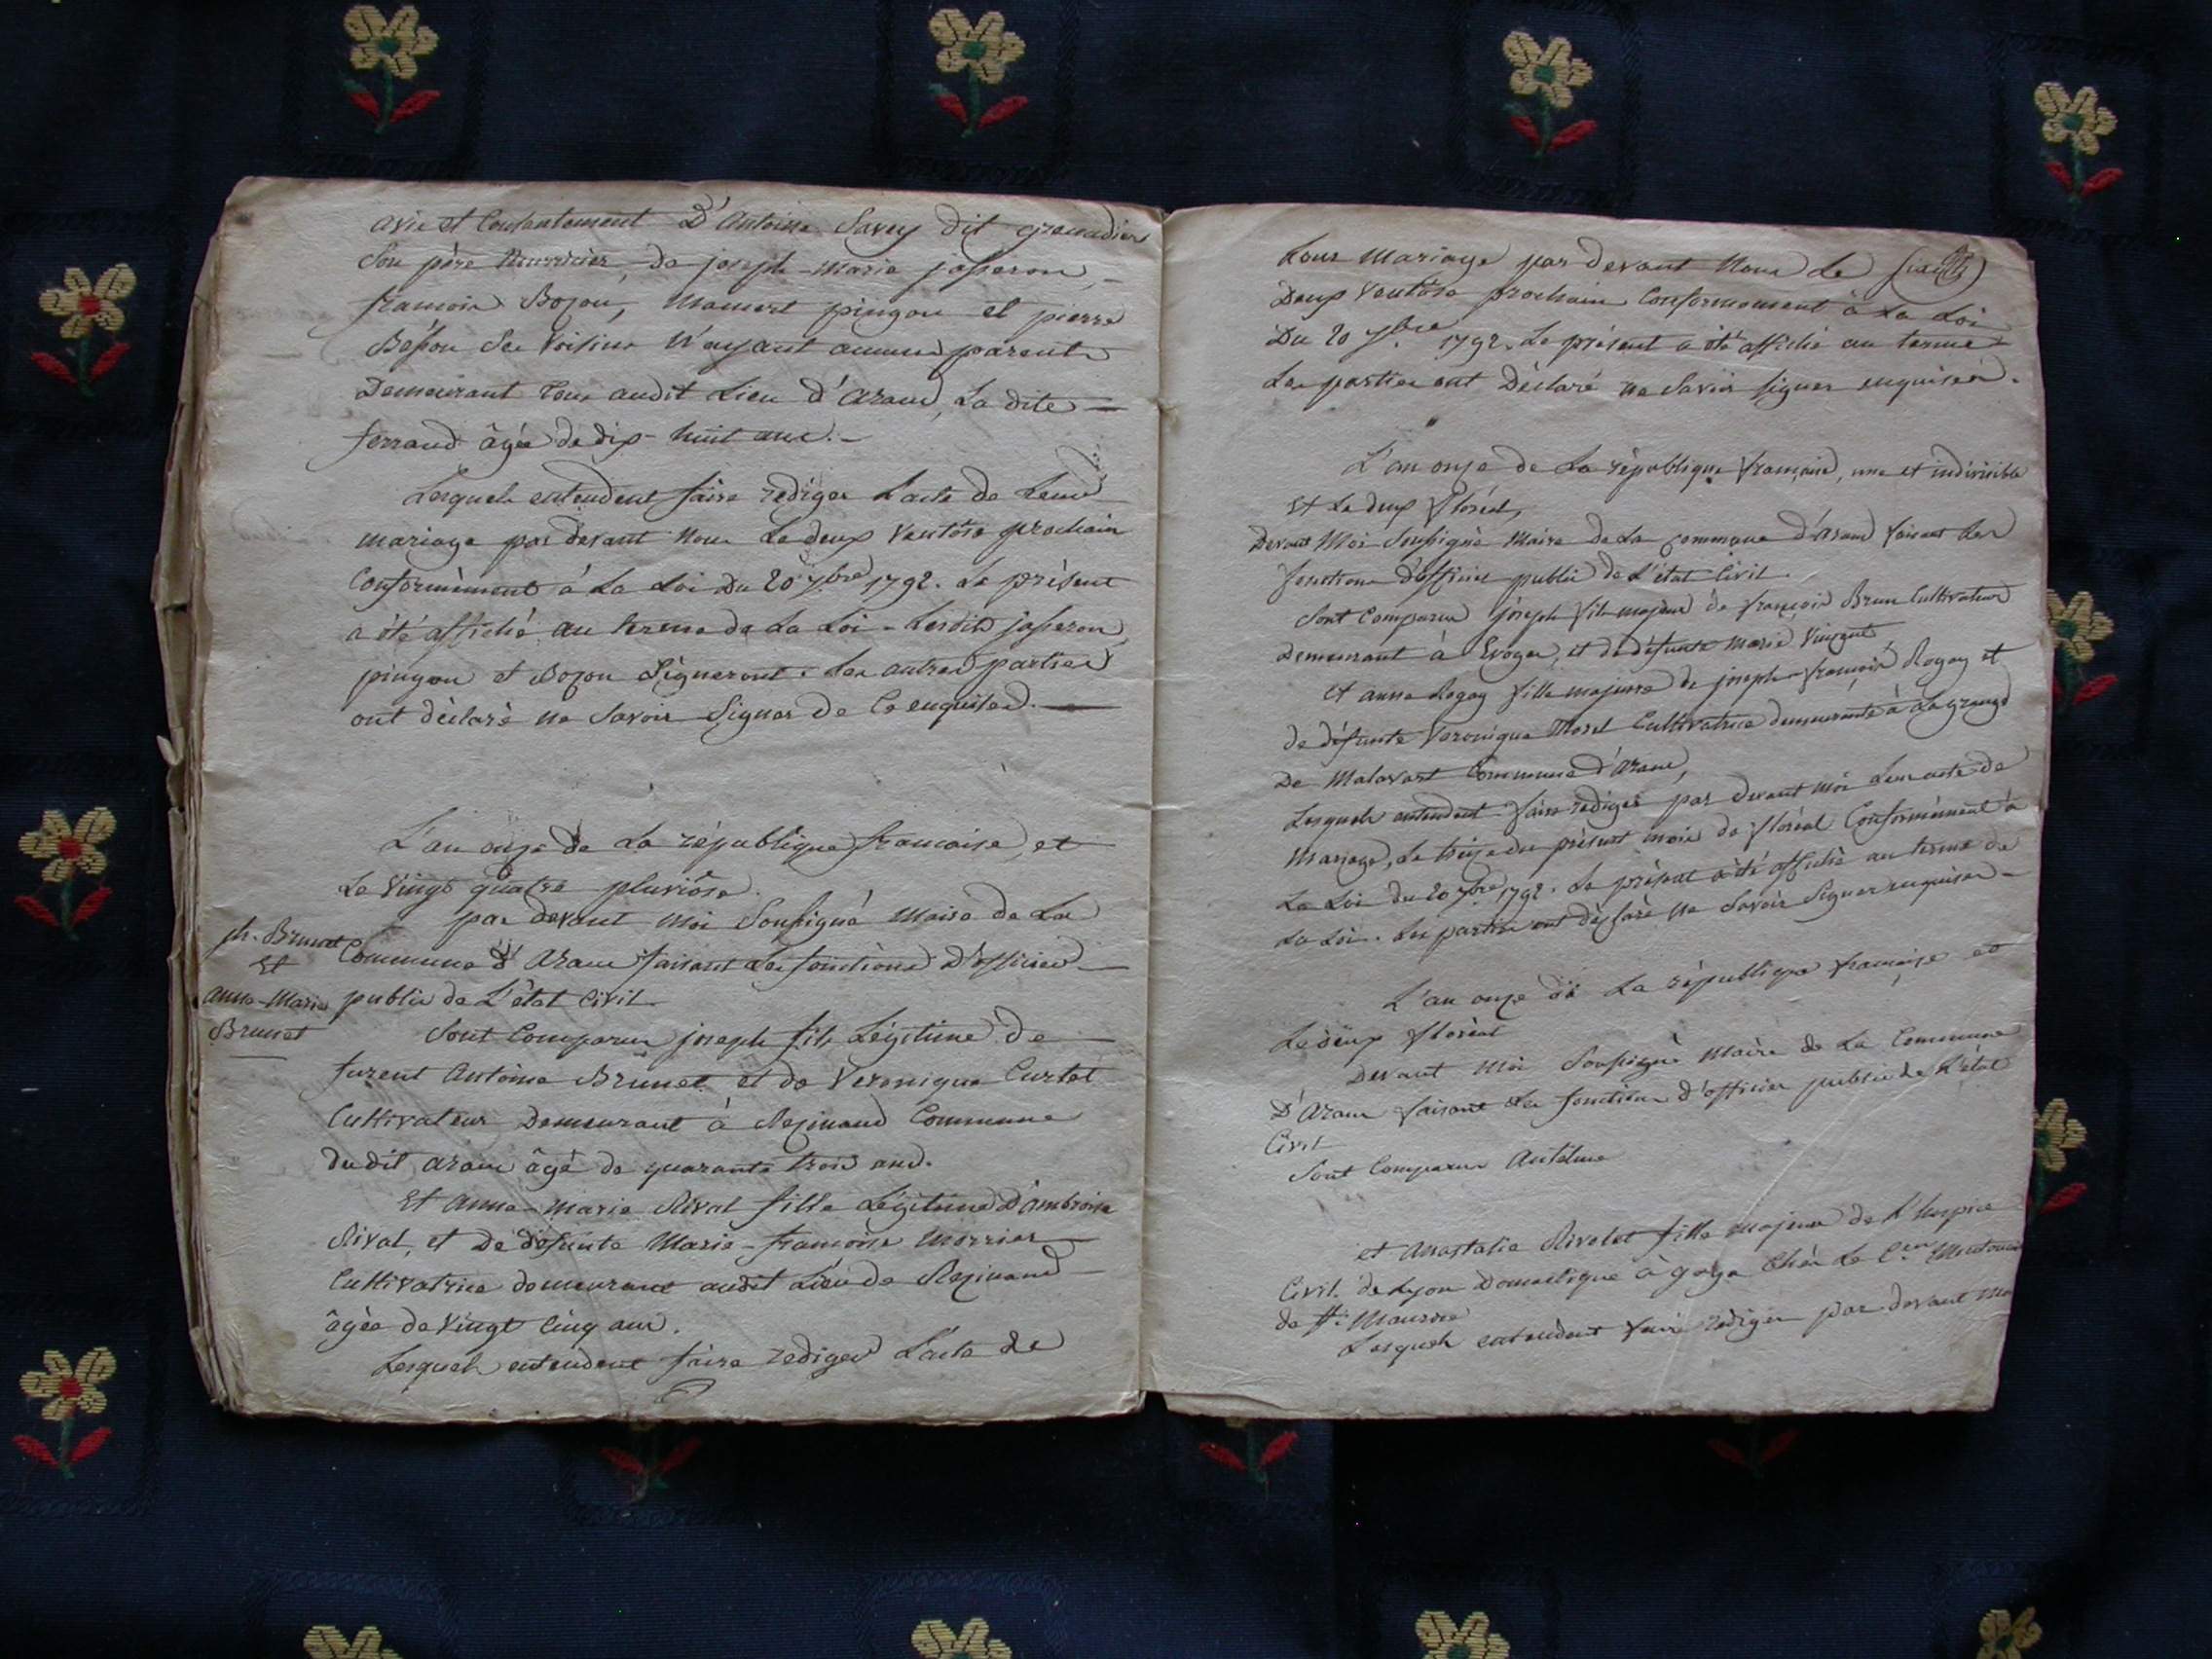 avis et Consentement D'Antoine Savey dit grenadier
Son père Nourricier, de joseph-Marie josseron,
françois Bozon, Mamert pingon et pierre
Besson Ses Voisins N'ayant aucuns parents
Demeurant tous audit Lieu d'Aranc, La dite
ferrand âgée de dix-huit ans.
Lesquels entendent faire rediger L'acte de Leur
mariage par devant Nous Le deux Ventôse prochain
Conformément à La Loi Du 20 7bre 1792. Le présent
a été affiché au terme de La Loi - Lesdits josseron,
pingon et Bozon Signeront. Les autres parties
ont déclaré ne Savoir Signer de Ce enquises.
L'an onze de La république francaise, et
Le Vingt quatre pluviôse.
par devant Moi Soussigné Maire de La
jh. Brunet Commune d'Aranc faisant Les fonctions D'officier
Et
anne-Marie public de L'état Civil
Brunet Sont Comparus joseph fils Légitime de
furent Antoine Brunet et de Veronique Curtet
Cultivateur Demeurant à Rezinand Commune
dudit aranc âgé de quarante trois ans.
Et anne-marie Rival fille Légitime D'ambroise
Rival, et De défunte Marie-françoise Morrier
Cultivatrice demeurant audit Lieu de Rezinand
âgée de Vingt Cinq ans.
Lesquels entendent faire rediger L'acte de
Leur Mariage par devant Nous Le
Deux Ventôse prochain Conformement à La Loi
Du 20 7bre 1792. Le présent a été affiché au terme
Les parties ont Déclaré ne Savoir Signer enquises.
L'an onze de La république française, une et indivisible
et Le deux floréal,
Devant Moi Soussigné Maire de La Commune d'Aranc faisant Les
fonctions d'officier public de L'état Civil.
Sont Comparus joseph fils majeur de françois Brun Cultivateur
Demeurant à Evoges, et de défunte Marie Vinçent
Et anne Rogay fille majeure de joseph-françois Rogay et
de défunte Veronique Morel Cultivatrice demeurante à La grange
De Malavart Commune d'Aranc,
Lesquels entendent faire rediger par devant moi Leur acte de
Mariage, Le treize du présent mois de floréal Conformément à
La Loi du 20 7bre 1792. Le présent a été affiché au terme de
La Loi. Les parties ont déclaré ne Savoir Signer enquises
L'an onze de La république française et
Le deux floréal
Devant Moi Soussigné Maire de La Commune
D'Aranc faisant Les fonctions d'officier public de L'état
Civil
Sont Comparus Antelme
et Anastasie Rivolet fille majeure de L'hospice
Civil de Lyon Domestique à gage Chés Le Cen
de St. Maurice
Lesquels entendent faire rediger par devant Moi